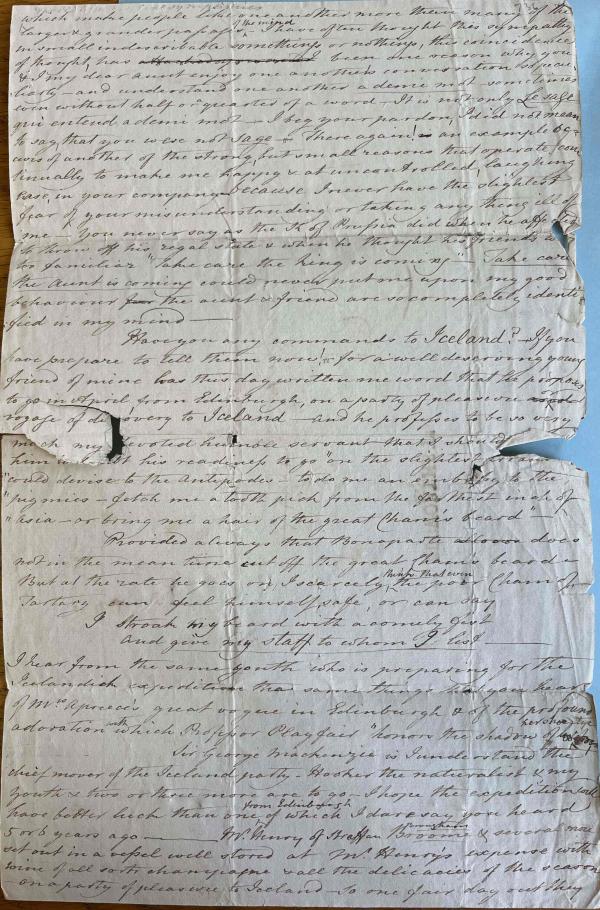 which make people like one another more than many of the
larger & grander passions. I have often thought this sympathy of the mind
in small indescribable somethings or nothings, this coincidence
of thought, has been one reason why you
& I my dear aunt enjoy one anothers conversation so pecu
liarly – and understand one another a demi mot – sometimes
even without half or quarter of a word – It is not only Le sage
qui entend a demi mot – I beg your pardon, I did not mean
to say that you were not sage – There again! – an example oc
curs of another of the strong but small reasons that operate con
tinually to make me happy & at uncontrolled, laughing
ease, in your company – because I never have the slightest
fear of your misunderstanding or taking any thing ill of
me – You never say as the K of Prussia did when he affected
to throw off his regal state & when he thought his friends
be familiar "Take care the King is coming" – Take care
the Aunt is coming could never put me upon my good
behaviour for the aunt & friend are so completely identi
fied in my mind –
Have you any commands to Iceland? – If you
have prepare to tell them now! – for a well deserving young
friend of mine has this day written me word that he proposes
to go in April from Edinburgh, on a party of pleasure
voyage of discovery to Iceland – and he professes to be so very
much my devoted humble servant that I should
him his readiness to go "on the slightest
"could devise to the Antipodes – to do me an embassy to the
"pigmies – fetch me a tooth pick from the farthest inch of
"Asia – or bring me a hair of the great Cham's beard" –
Provided always that Bonaparte does
not in the mean time cut off the great Cham's beard –
But at the rate he goes on, I scarcely think that even the poor Cham of
Tartary can feel himself safe, or can say
I stroak my beard with a comely gest
And give my staff to whom I list
I hear from the same youth who is preparing for the
Icelandish expedition the same things that you hear
of Mrs Apreece's great vogue in Edinburgh & of the profound
adoration with which Professor Playfair "honors the shadow of her shoe tye
Sir George Mackenzie is I understand the
chief mover of the Iceland party – Hooker the naturalist & my
youth & two or three more are to go – I hope the expedition will
have better luck than one from Edinburgh of which I dare say you heard
5 or 6 years ago – Mr Henry of Straffan Broome & several more
set out in a vessel well stored at Mr Henry's expense with
wine of all sorts champagne & all the delicacies of the season
on a party of pleasure to Iceland – So one fair day out they